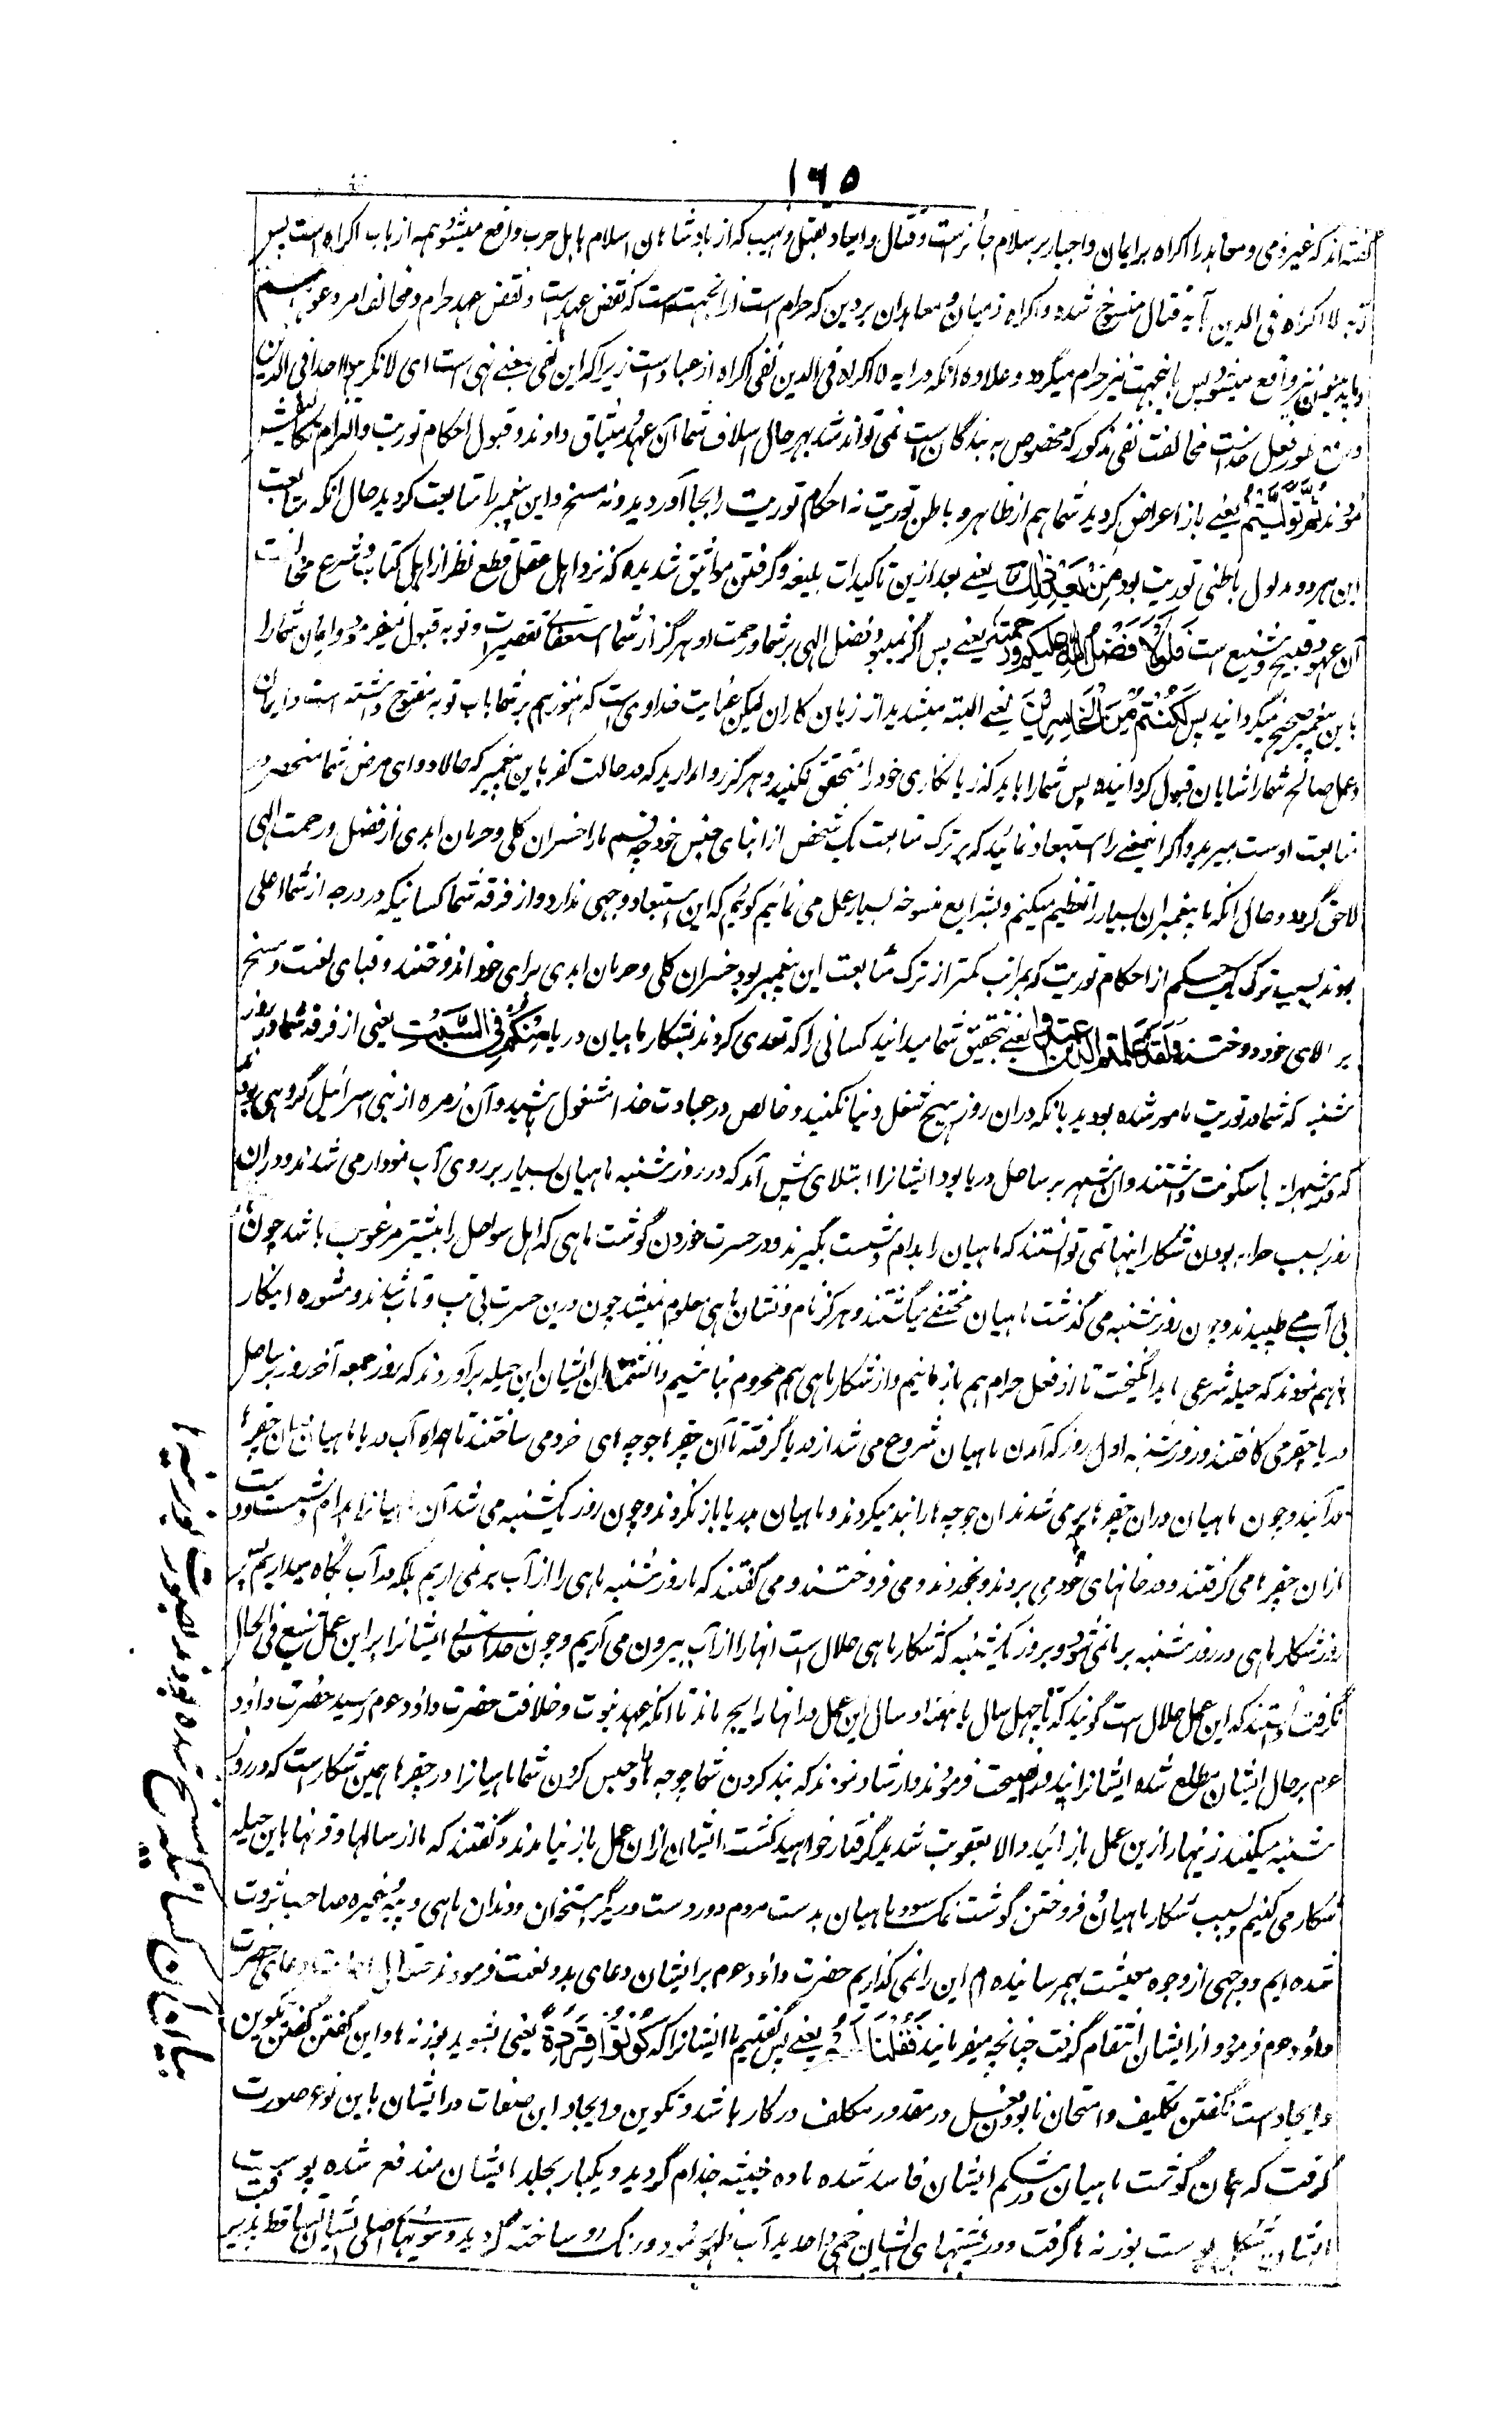 ۱۶۵
گفته اند که غیر ذمی و معاهد را اکراه بر ایمان و اجبار بر سلام جائز است و قتال و ایجاد بقتل و نهیب که از بادشاهان اسلام با اهل حرب واقع میشود همه از باب اکراه است پس
آیه لا اکراه فی الدین بآیه قتال منسوخ شده و اکراه ذمیان و معاهدان بر دین که حرام است ازانجهت است که نقض عهد است و نقض عهد حرام و مخالف امر و عوا
نیز واقع میشود پس باینجهت نیز حرام میگردد و علاوه آنکه در آیه لا اکراه فی الدین نفی اکراه از عباد است زیرا که این نفی بمعنی نهی است ای لا تکرهوا احدا فی الدین
و رفع طور بفعل خداست مخالفت نفی مذکور که مخصوص به بندگان است نمی تواند شد بهر حال اسلاف شما آن عهد و میثاق دادند و قبول احکام توریت و التزام تکالیف
نمودند ثُمَّ تَوَلَّيْتُمْ یعنی باز اعراض کردید شما هم از ظاهر و باطن توریت نه احکام توریت را بجا آوردید و نه مسخ و این پیغمبر را متابعت کردید حال آنکه متابعت
این هر دو مدلول باطنی توریت بود مِنْ بَعْدِ ذٰلِكَ یعنی بعد ازین تاکیدات بلیغه و گرفتن مواثیق شدیده که نزد اهل عقل قطع نظر از اهل کتاب و شرع مخالفت
آن عهود قبیح و شنیع است فَلَوْلَا فَضْلُ اللّٰهِ عَلَيْكُمْ وَرَحْمَتُهُ یعنی پس اگر نمیبود فضل الهی بر شما و رحمت او هرگز از شما استعفای تقصیرات و توبه قبول نمیفرمود و ایمان شما را
باین پیغمبر صحیح نمیگردانید پس لَكُنْتُمْ مِنَ الْخَاسِرِينَ یعنی البته میشدید از زیان کاران لیکن عنایت خداوی است که هنوز هم بر شما باب توبه مفتوح داشته است و ایمان
و عمل صالح شما را شایان قبول گردانیده پس شما را باید که زیانکاری خود را متحقق نکنید و هرگز روا ندارید که در حالت کفر باین پیغمبر که حالا دوای مرض شما منحصر در
متابعت اوست بمیرید و اگر اینمعنی را استبعاد نمائید که بر ترک متابعت یک شخص از ابنای جنس خود چه قسم ما را خسران کلی و حرمان ابدی از فضل و رحمت الهی
لاحق گردد و حال آنکه ما پیغمبران بسیار را تعظیم میکنم و بشرایع منسوخه بسیار عمل می نمائیم گوئیم که این استبعاد وجهی ندارد و از فرقه شما کسانیکه در درجه از شما اعلی
بودند بسبب ترک یک حکم از احکام توریت که بمراتب کمتر از ترک متابعت این پیغمبر بود خسران کلی و حرمان ابدی برای خود اندوختند و قبای لعنت و مسخ
بر بالای خود دوختند وَلَقَدْ عَلِمْتُمُ الَّذِينَ اعْتَدَوْا یعنی بتحقیق شما میدانید کسانی را که تعدی کردند بشکار ماهیان دریا مِنْكُمْ فِي السَّبْتِ یعنی از فرقه شما در روز
شنبه که شما در توریت مامور شده بودید بانکه دران روز هیچ شغل دنیا نکنید و خالص در عبادت خدا مشغول باشید و آن زمره از بنی اسرائیل گروهی بودند
که در شهر با سکونت داشتند و آن شهر بر ساحل دریا بود ایشانرا ابتلای پیش آمد که در روز شنبه ماهیان بسیار بر روی آب نمودار می شدند و دران
روز بسبب حرام بودن شکار اینها نمی توانستند که ماهیان را بدام و شست بگیرند و در حسرت خوردن گوشت ماهی که اهل سواحل را بیشتر مرغوب باشد چون
بی آب می طپیدند و چون روز شنبه می گذشت ماهیان مختفی میگشتند و هرگز نام و نشان ماهی معلوم نمیشد چون درین حسرت بی تب و تاب شدند و مشوره اینکار
باهم نمودند که حیله شرعی باید انگیخت تا از فعل حرام هم باز مانیم و از شکار ماهی هم محروم نباشیم دانشمندان ایشان این حیله برآوردند که روز جمعه آخر روز بر ساحل
دریا حفره می کافتند و روز شنبه اول روز که آمدن ماهیان شروع می شد از دریا گرفته تا آن حفرها جوچه های خرد می ساختند تا همراه آب دریا ماهیان بآن حفرها
درآیند و چون ماهیان دران حفرها پر می شدند آن جوچه ها را بند میکردند و ماهیان بدریا باز نگردند و چون روز یکشنبه می شد آن ماهیانرا بدام و شست و دست
ازان حفرها می گرفتند و در خانهای خود می بردند و میخوردند و می فروختند و می گفتند که ما روز شنبه ماهی را از آب بر نمی اریم بلکه در آب نگاه میداریم پس
روز شکار ماهی در روز شنبه بر ما نمی شود و بروز یکشنبه که شکار ماهی حلال است انها را از آب بیرون می آریم و چون خدا تعالی ایشانرا بر این عمل شنیع فی الحال
نگرفت دانستند که این عمل حلال است گویند که تا چهل سال یا هفتاد سال این عمل در انها رایج ماند تا آنکه عهد نبوت و خلافت حضرت داؤد عم رسید حضرت داؤد
عم بر حال ایشان مطلع شده ایشانرا پند و نصیحت فرمودند و ارشاد نمودند که بند کردن شما جوچه ها و حبس کردن شما ماهیانرا در حفرها همین شکار است که در روز
شنبه میکنید زنهار ازین عمل باز آئید و الا بعقوبت شدید گرفتار خواهید گشت ایشان ازان عمل باز نیامدند و گفتند که ما از سالها و قرنها باین حیله
شکار می کنیم و بسبب شکار ماهیان و فروختن گوشت نمک سود ماهیان بدست مردم دور دست و دیگر استخوان و دندان ماهی و پیه و غیره صاحب ثروت
شده ایم و وجهی از وجوه معیشت بهم رسانیده ام این را نمی گذاریم حضرت داؤد عم بر ایشان دعای بد و لعنت فرمودند حق تعالی اجابت دعای حضرت
داؤد عم فرمود و از ایشان انتقام گرفت چنانچه میفرمایند فَقُلْنَا لَهُمْ یعنی پس گفتیم ما ایشانرا که كُونُوا قِرَدَةً یعنی بشوید بوزنه ها و این گفتن گفتن تکوین
و ایجاد است نه گفتن تکلیف و امتحان تا بودن فعل در مقدور مکلف در کار باشد و تکوین و ایجاد این صفات در ایشان باین نوع صورت
گرفت که همان گوشت ماهیان در شکم ایشان فاسد شده ماده خبیثه جذام گردید و یکبار بجلد ایشان مندفع شده پوست
ایشان بشکل پوست بوزنه ها گرفت و در پشتهای ایشان خمی و احدیداب ظاهر شد و رنگ رو ساخته گردید و مویهای اصلی ایشان ساقط
بیان آن کسانیکه مسخ شده بودند بصورت بوزنیها